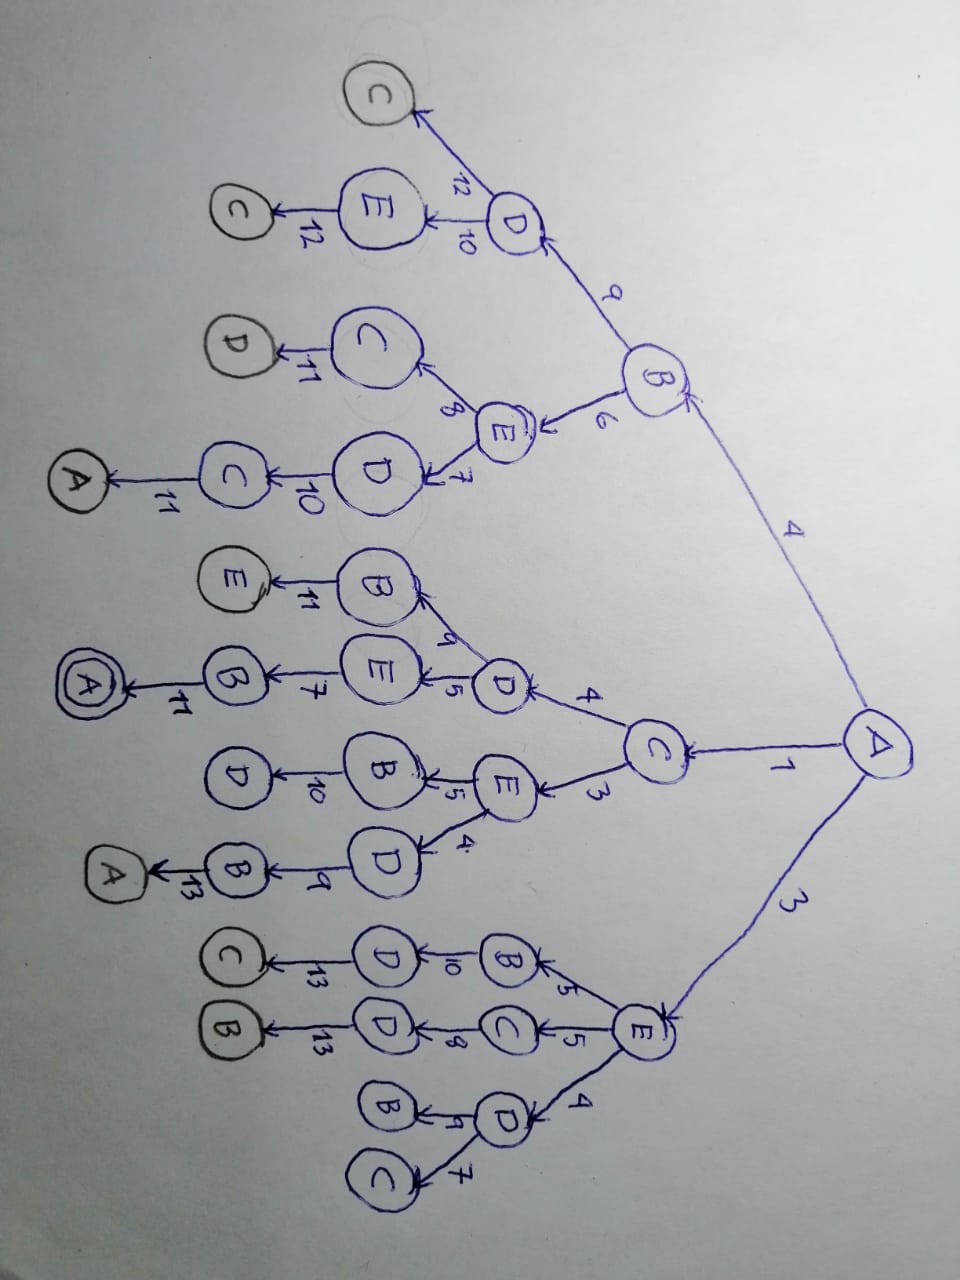 A
4 1 3
B C E
9 6 4 3 5 5 4
D E D E B C D
12 10 8 7 9 5 5 4 10 8 9 7
C E C D B E B D D D B C
12 11 10 11 7 10 9 13 13
C D C E B D B C B
11 11 13
A A A